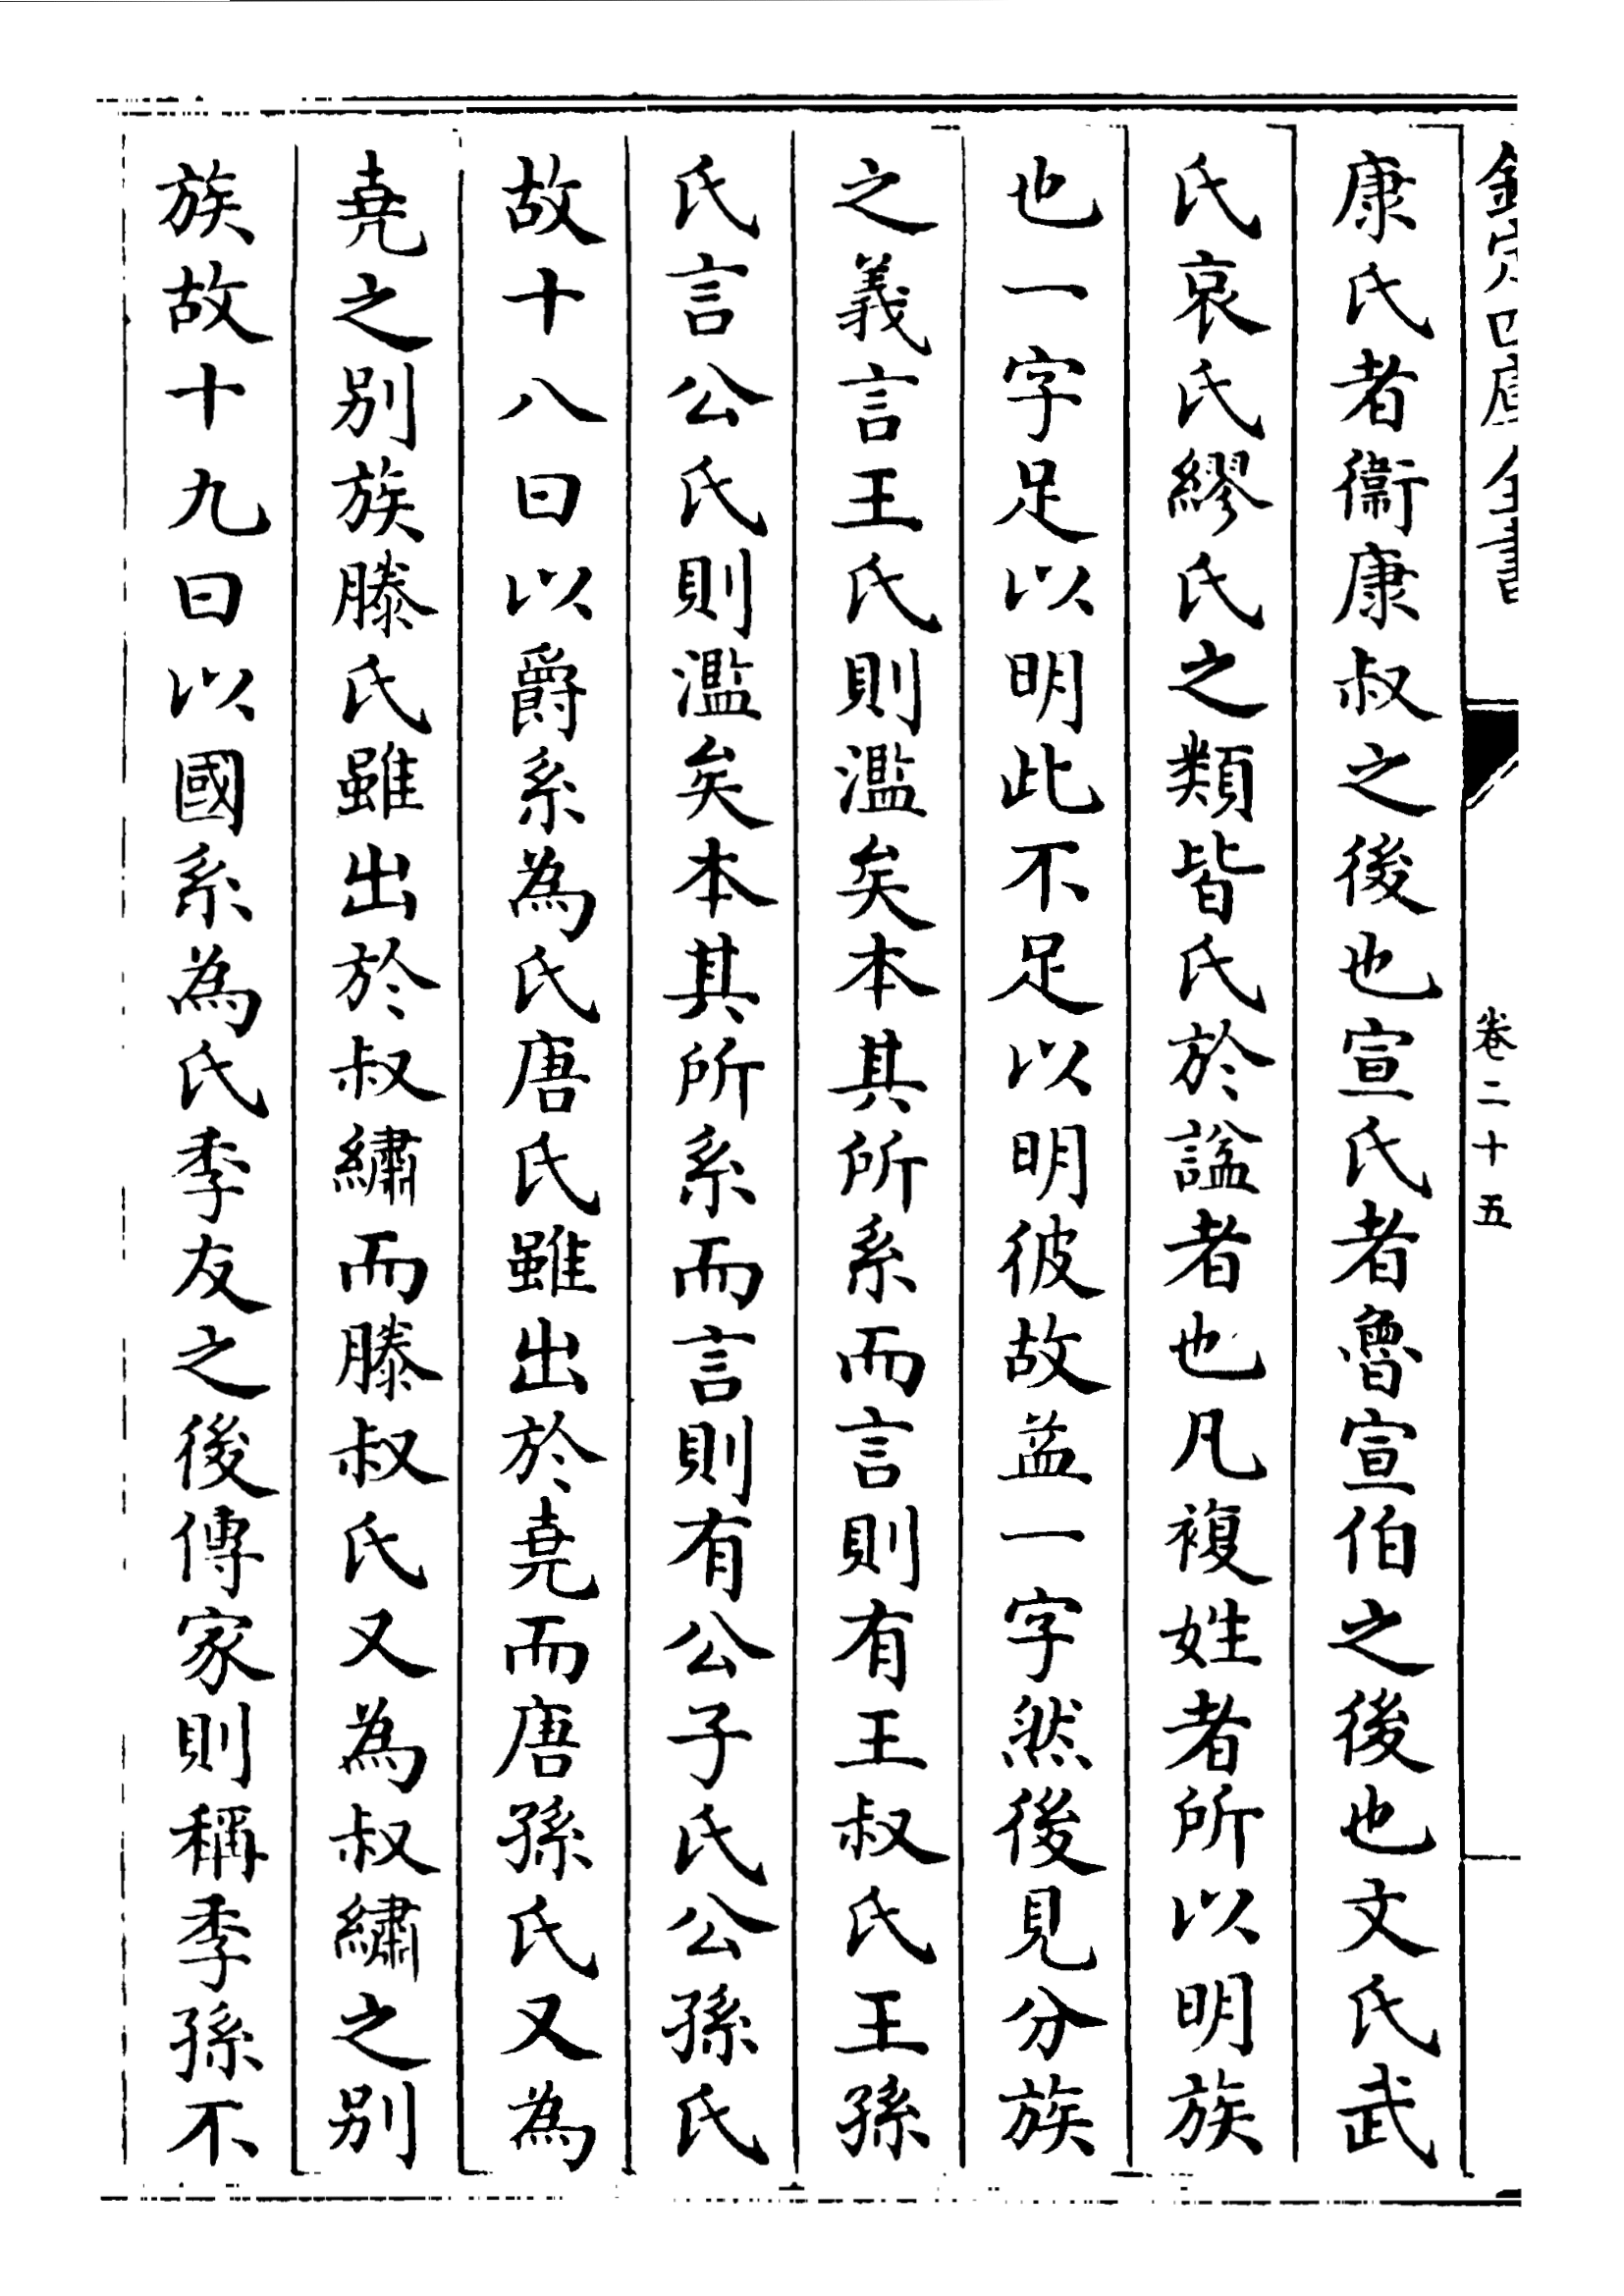 欽定四庫全書
卷二十五
康氏者衞康叔之後也宣氏者魯宣伯之後也文氏武
氏哀氏繆氏之類皆氏於諡者也凡複姓者所以明族
也一字足以明此不足以明彼故益一字然後見分族
之義言王氏則濫矣本其所系而言則有王叔氏王孫
氏言公氏則濫矣本其所系而言則有公子氏公孫氏
故十八曰以爵系為氏唐氏雖出於堯而唐孫氏又為
堯之别族滕氏雖出於叔繡而滕叔氏又為叔繡之别
族故十九曰以國系為氏季友之後傳家則稱季孫不